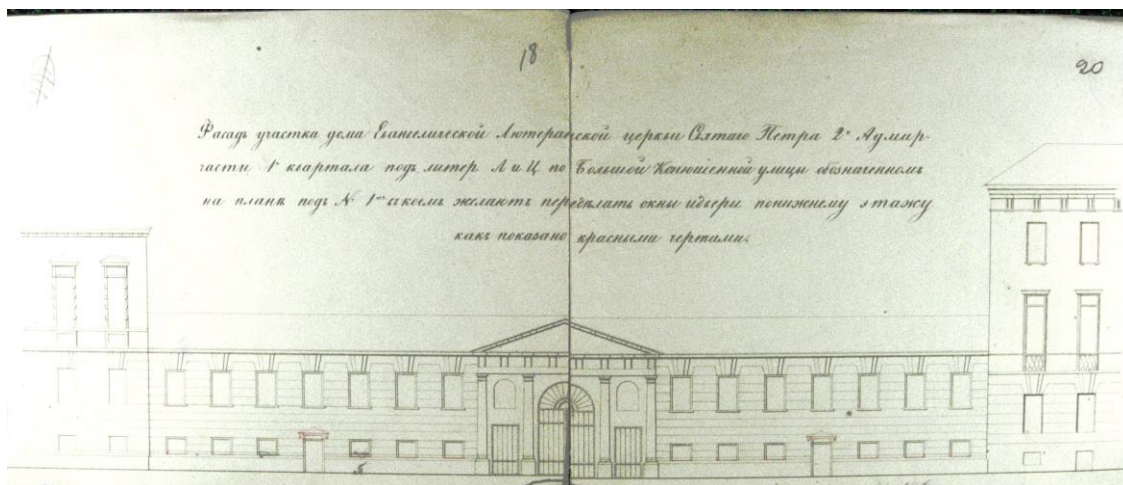 18
20
Фасадъ участка дома Евангелической Лютеранской церкви Святаго Петра 2й Адмир-
части 1го квартала подъ литер. Л и Ц по Большой Конюшенной улицы обозначенномъ
на планѣ подъ № 1мъ въ коемъ желаютъ передѣлать окны и двери по нижнему этажу
какъ показано красными чертами.